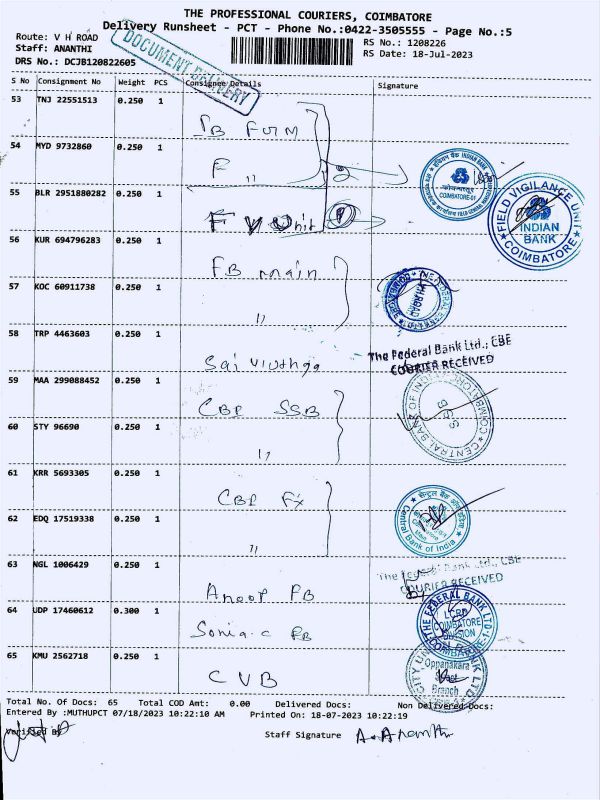 THE PROFESSIONAL COURIERS, COIMBATORE
Delivery Runsheet - PCT - Phone No.:0422-3505555 - Page No.:5
Route: V H ROAD
RS No.: 1208226
Staff: ANANTHI
RS Date: 18-Jul-2023
DRS No.: DCJB120822605
DOCUMENT DELIVERY
S No Consignment No Weight PCS Consignee Details Signature
53 TNJ 22551513 0.250 1
54 MYD 9732860 0.250 1
INDIAN BANK
COIMBATORE-01
55 BLR 2951880282 0.250 1
FIELD VIGILANCE UNIT
INDIAN BANK
COIMBATORE
56 KUR 694796283 0.250 1
FB main
57 KOC 60911738 0.250 1
"
58 TRP 4463603 0.250 1
The Federal Bank Ltd., CBE
COURIER RECEIVED
59 MAA 299088452 0.250 1
CBI SSB
CENTRAL BANK OF INDIA
SSB
60 STY 96690 0.250 1
"
61 KRR 5693305 0.250 1
CBI FX
सेन्ट्रल बैंक ऑफ इंडिया
Central Bank of India
62 EDQ 17519338 0.250 1
"
63 NGL 1006429 0.250 1
Anoop FB
The Federal Bank Ltd., CBE
COURIER RECEIVED
64 UDP 17460612 0.300 1
Sonia.c FB
THE FEDERAL BANK LTD
LCRD
COIMBATORE
DIVISION
65 KMU 2562718 0.250 1
CVB
Oppanakara
Street
Branch
Total No. Of Docs: 65 Total COD Amt: 0.00 Delivered Docs: Non Delivered Docs:
Entered By :MUTHUPCT 07/18/2023 10:22:10 AM Printed On: 18-07-2023 10:22:19
Verified By
Staff Signature A. Ananthi